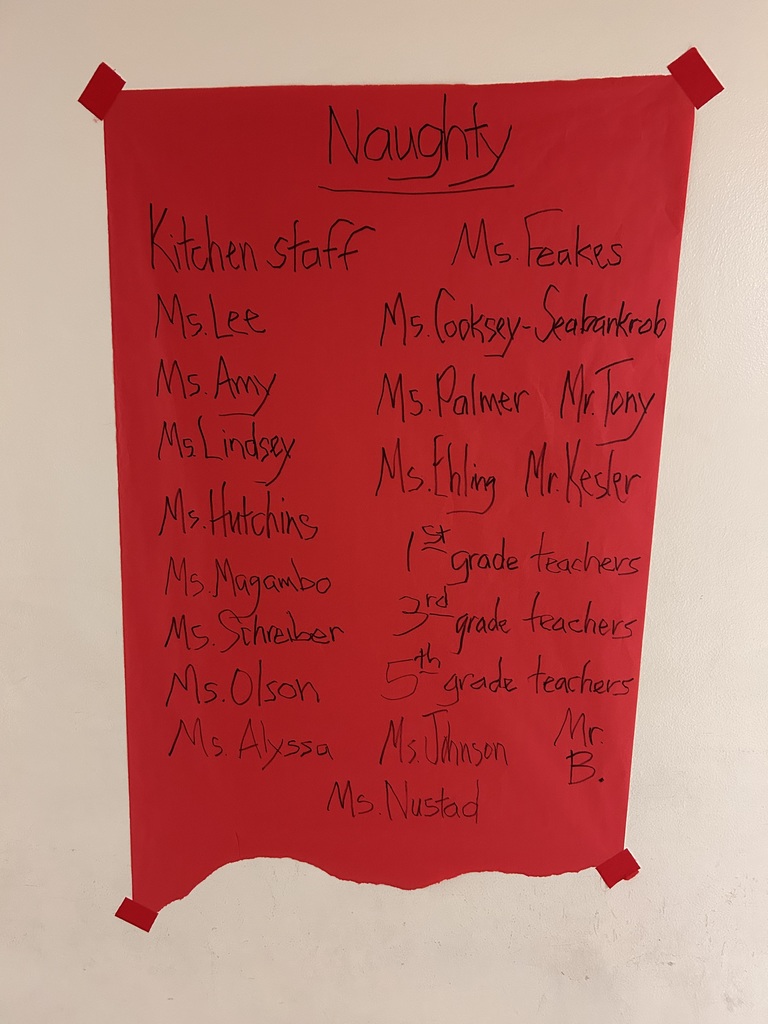 Naughty
Kitchen staff
Ms. Lee
Ms. Amy
Ms. Lindsey
Ms. Hutchins
Ms. Magambo
Ms. Schreiber
Ms. Olson
Ms. Alyssa
Ms. Feakes
Ms. Cooksey-Seabankrob
Ms. Palmer Mr. Tony
Ms. Ehling Mr. Kesler
1st grade teachers
3rd grade teachers
5th grade teachers
Ms. Johnson Mr. B.
Ms. Nustad